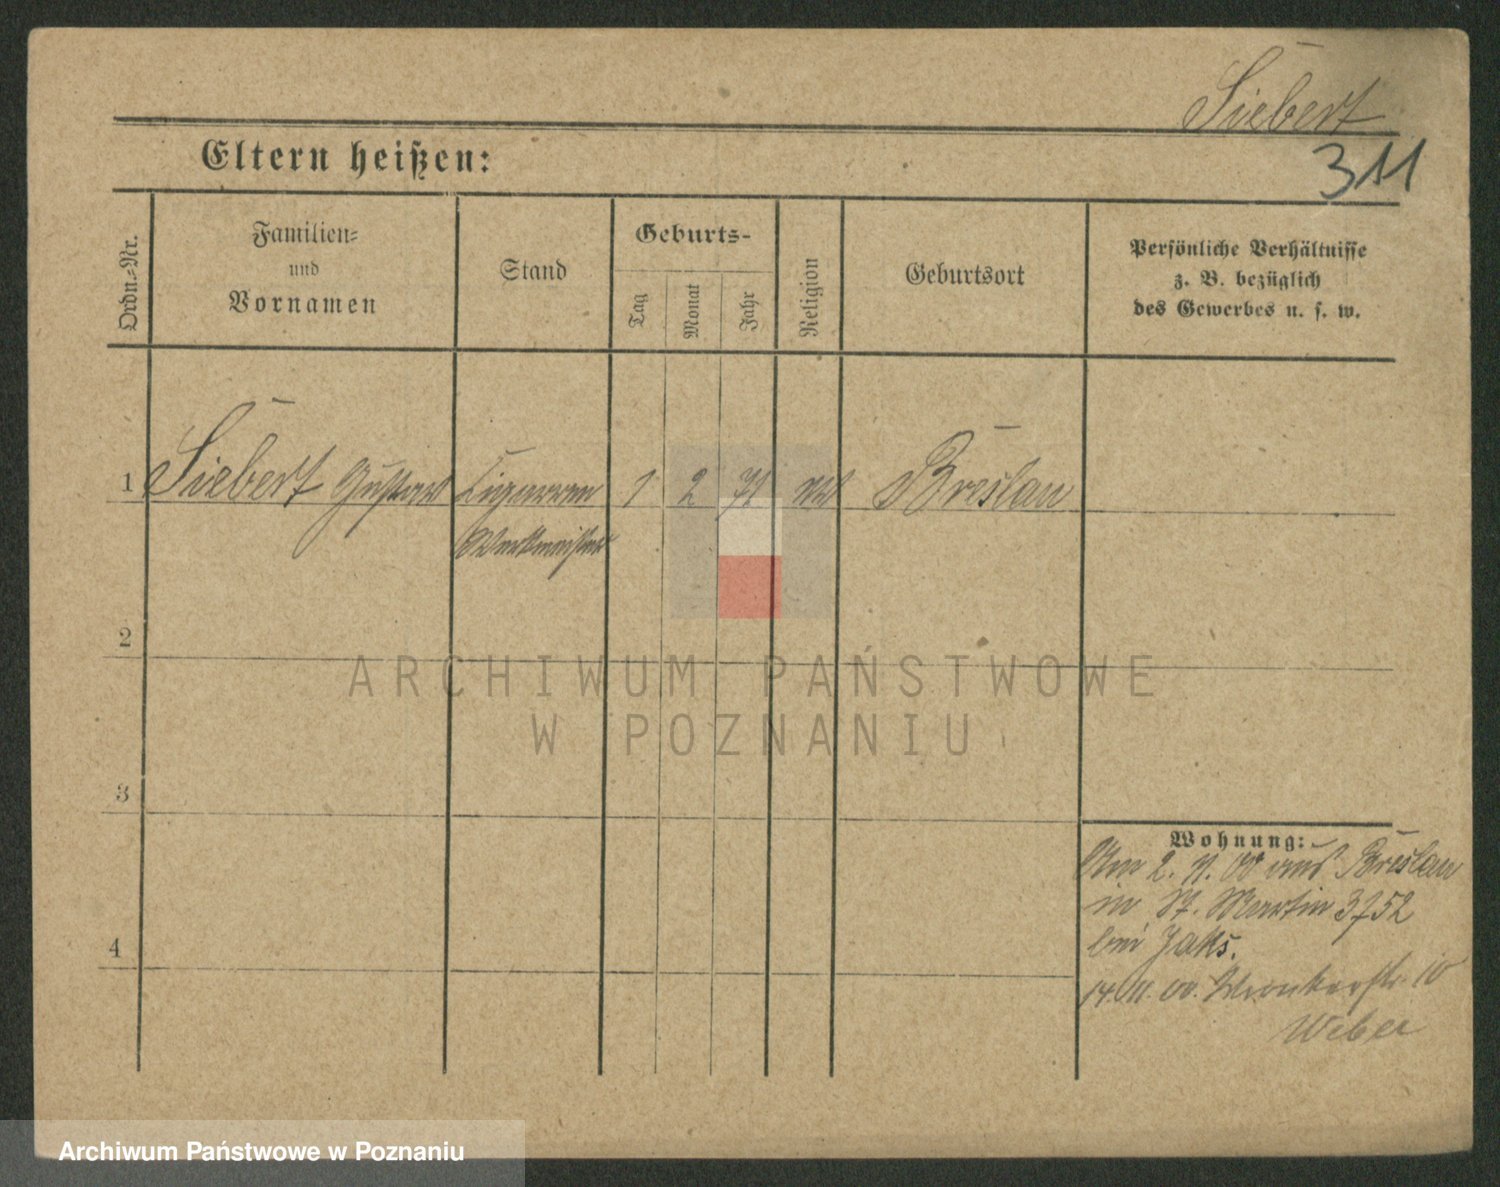 Siebert
311
Eltern heißen:
Ordn.-Nr.
Familien-
und
Vornamen
Stand
Geburts-
Tag
Monat
Jahr
Religion
Geburtsort
Persönliche Verhältnisse
z. B. bezüglich
des Gewerbes u. s. w.
1 Siebert Gustav Cigarren 1 2 71 Breslau
Werkmeister
2
3
4
Wohnung:
Am 2. 11. 00 aus Breslau
in St. Martin 3752
bei Jaks.
14. 11. 00. Wronkerstr. 10
Weber
ARCHIWUM PAŃSTWOWE
W POZNANIU
Archiwum Państwowe w Poznaniu